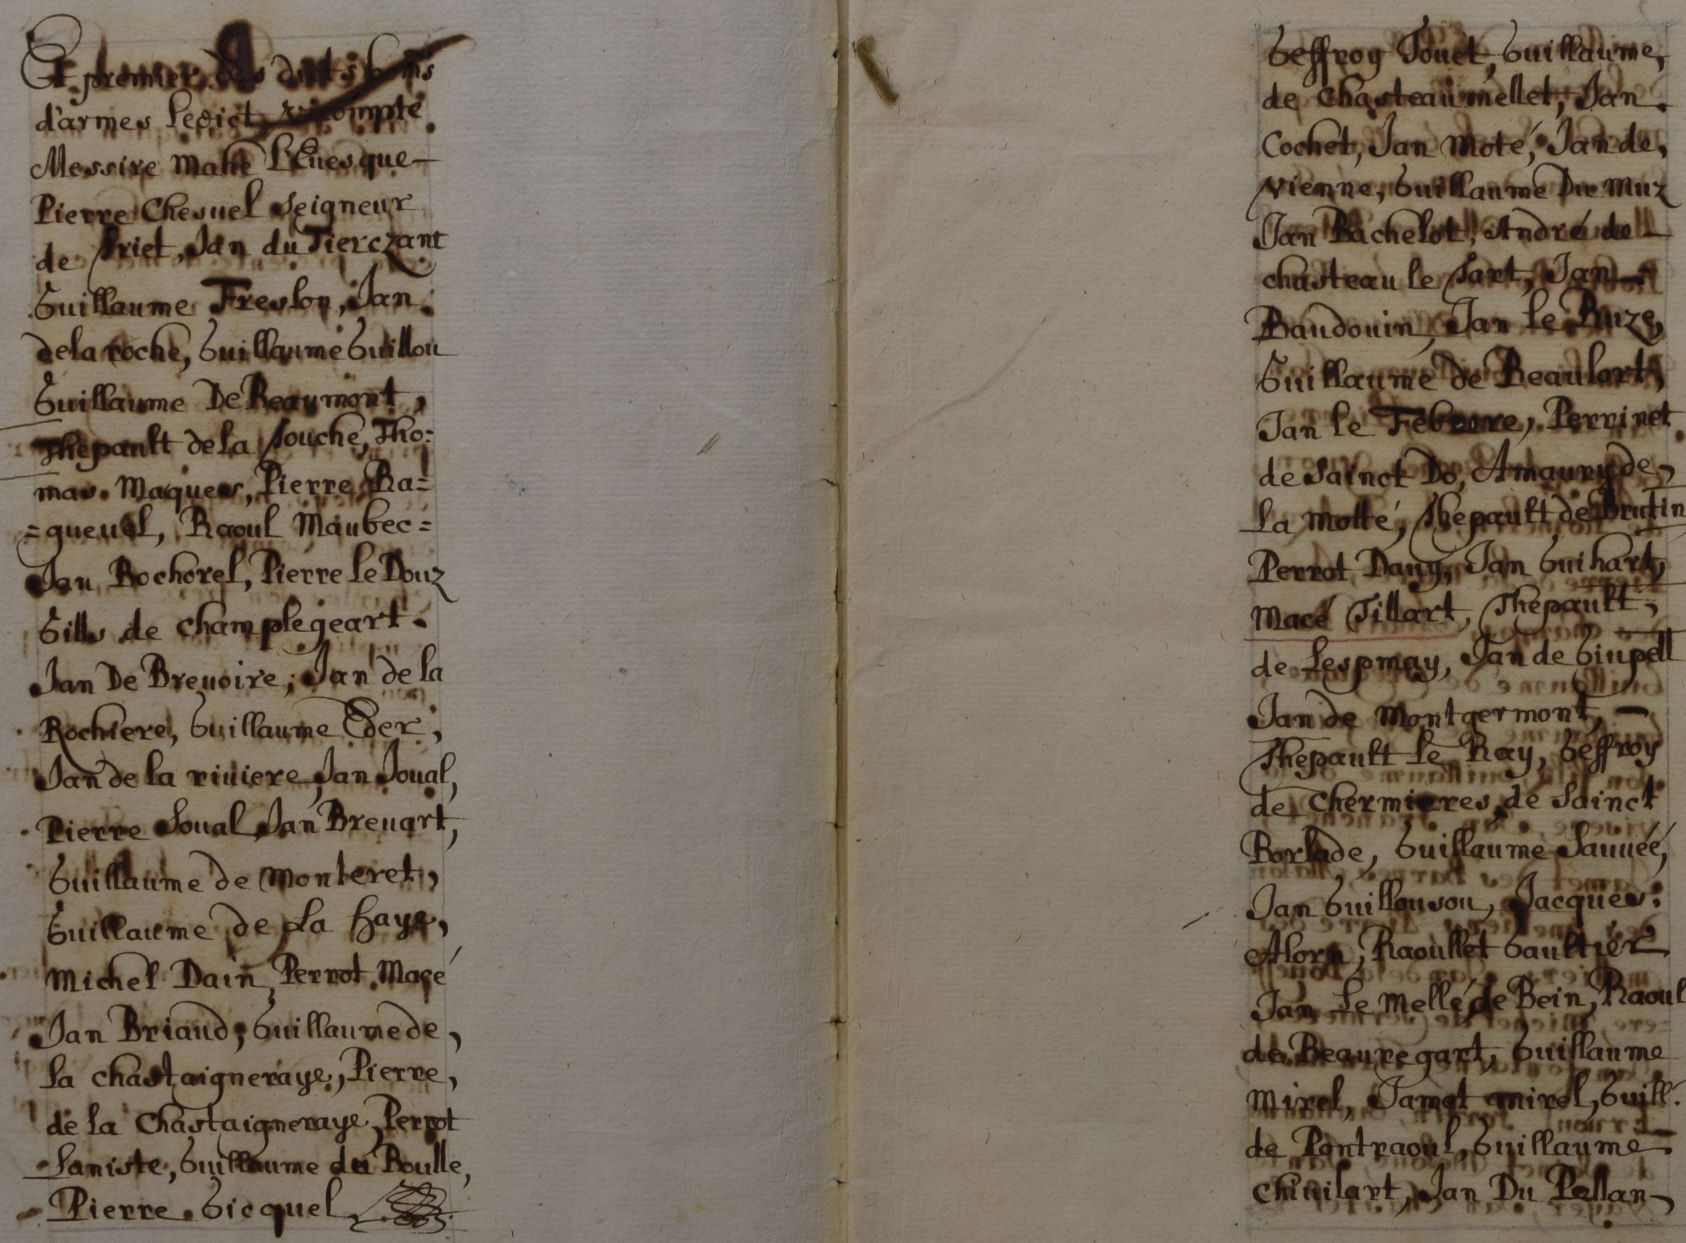 Et premier des dits homs
d'armes Ledict vicompte
Messire Mahé L'Euesque
Pierre Chesnel Seigneur
de friet, Jan du Tierczant
Guillaume Freslon, Jan
de la roche, Guillaume Guillou
Guillaume De Beaumont,
Thepault de la souche, Tho=
mas Maques, Pierre Ra=
=gueuel, Raoul Maubec=
Jan Rochorel, Pierre Le Bouz
Gills de champlegeart
Jan De Breuoire, Jan de la
Rochiere, Guillaume Eder,
Jan de la riuiere, Jan Joual,
Pierre Joual Jan Breuart,
Guillaume de monteret,
Guillaume de La haye,
Michel Dain, Perrot Macé
Jan Briand, Guillaume de,
la chastaigneraye, Pierre,
de la Chastaigneraye, Perrot
Laniste, Guillaume du Boulle,
Pierre Gicquel
Geffroy Jouet, Guillaume,
de Chasteaumellet, Jan
Cochet, Jan Moté, Jan de,
Vienne, Guillaume Du Muz
Jan Bachelot, André de
chasteau le sart, Jan
Baudouin, Jan Le Buze,
Guillaume de Beaulort,
Jan le Febure, Perrinet
de Sainct Do, Amaury de,
La motte, Thepault de Brutin
Perrot Dauy, Jan Guihart,
Macé Tillart, Thepault,
de Lespinay, Jan de Guipell
Jan de Montgermont,
Thepault Le Ray, Geffroy
de Chermieres de Sainct
Borlade, Guillaume Sauueé,
Jan Guillouson, Jacques
Alorn, Raoullet Gaultier
Jan Le Mellé de Bein, Raoul
de Beauregart, Guillaume
Mirel, Jamet mirel, Guill.
de Pontraoul, Guillaume
Chiuilart, Jan Du Pellan